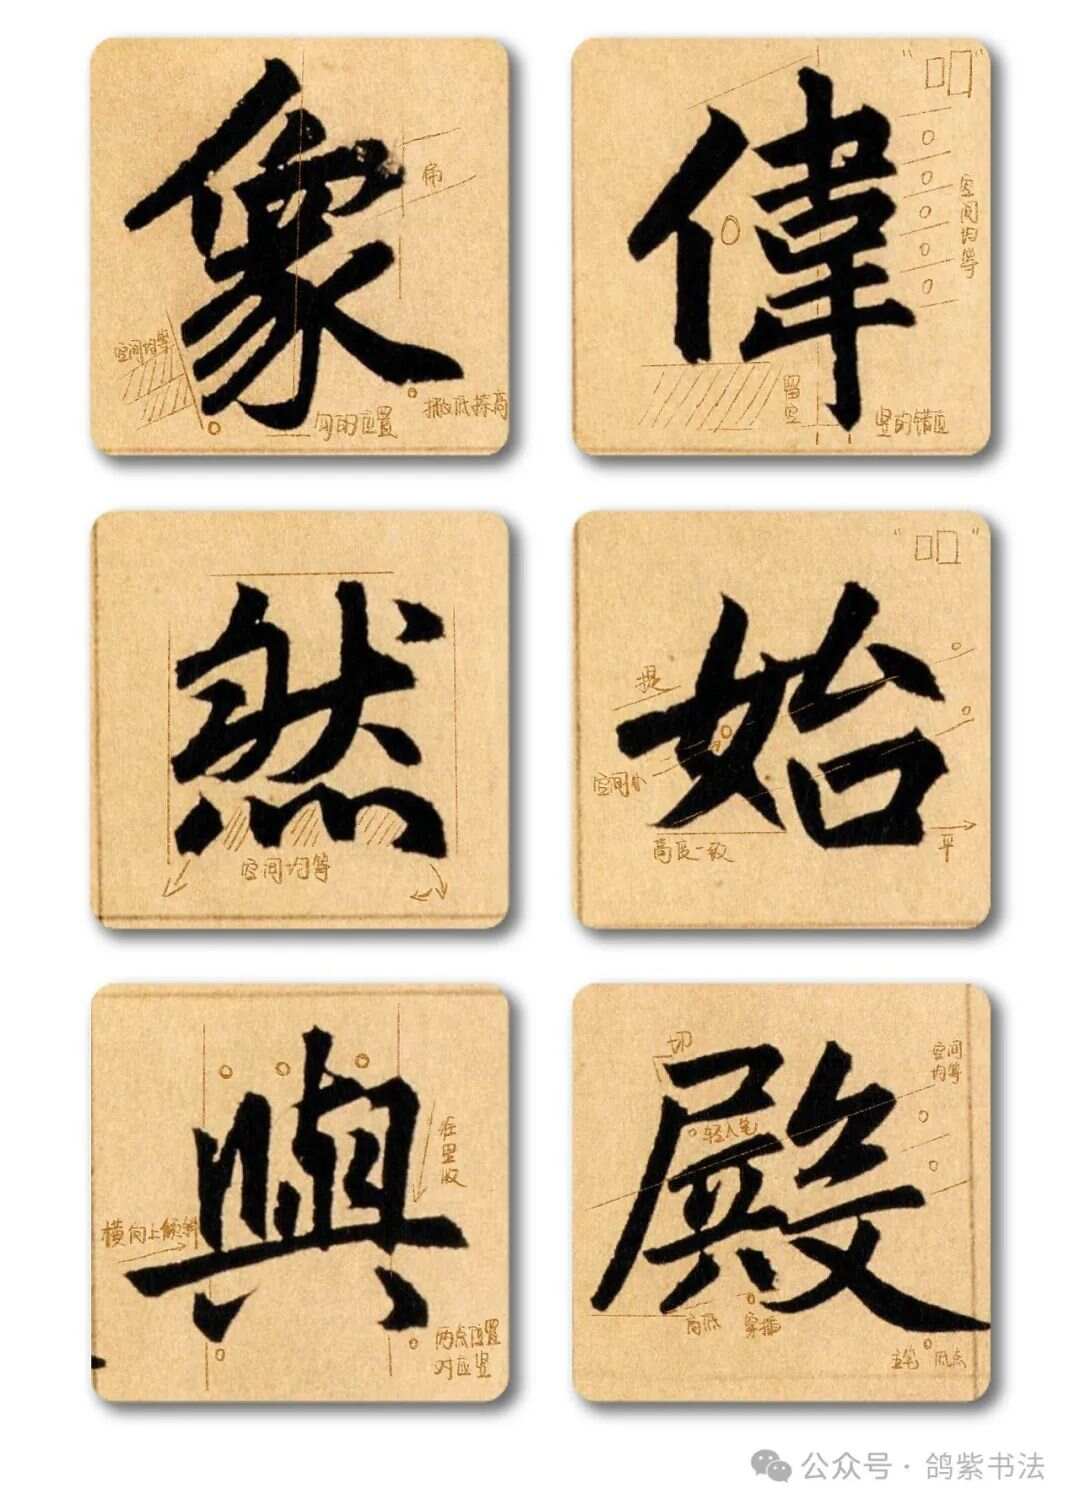 象
弟
空间均等
勾的位置
撇低捺高
偉
"吅"
空间均等
留空
竖的错位
然
空间均等
始
"吅"
提
空间小
高度一致
平
與
在里收
横向上倾斜
两点位置
对应竖
殿
切
空间
均等
轻入笔
高低
穿插
主笔 低点
公众号·鸽紫书法